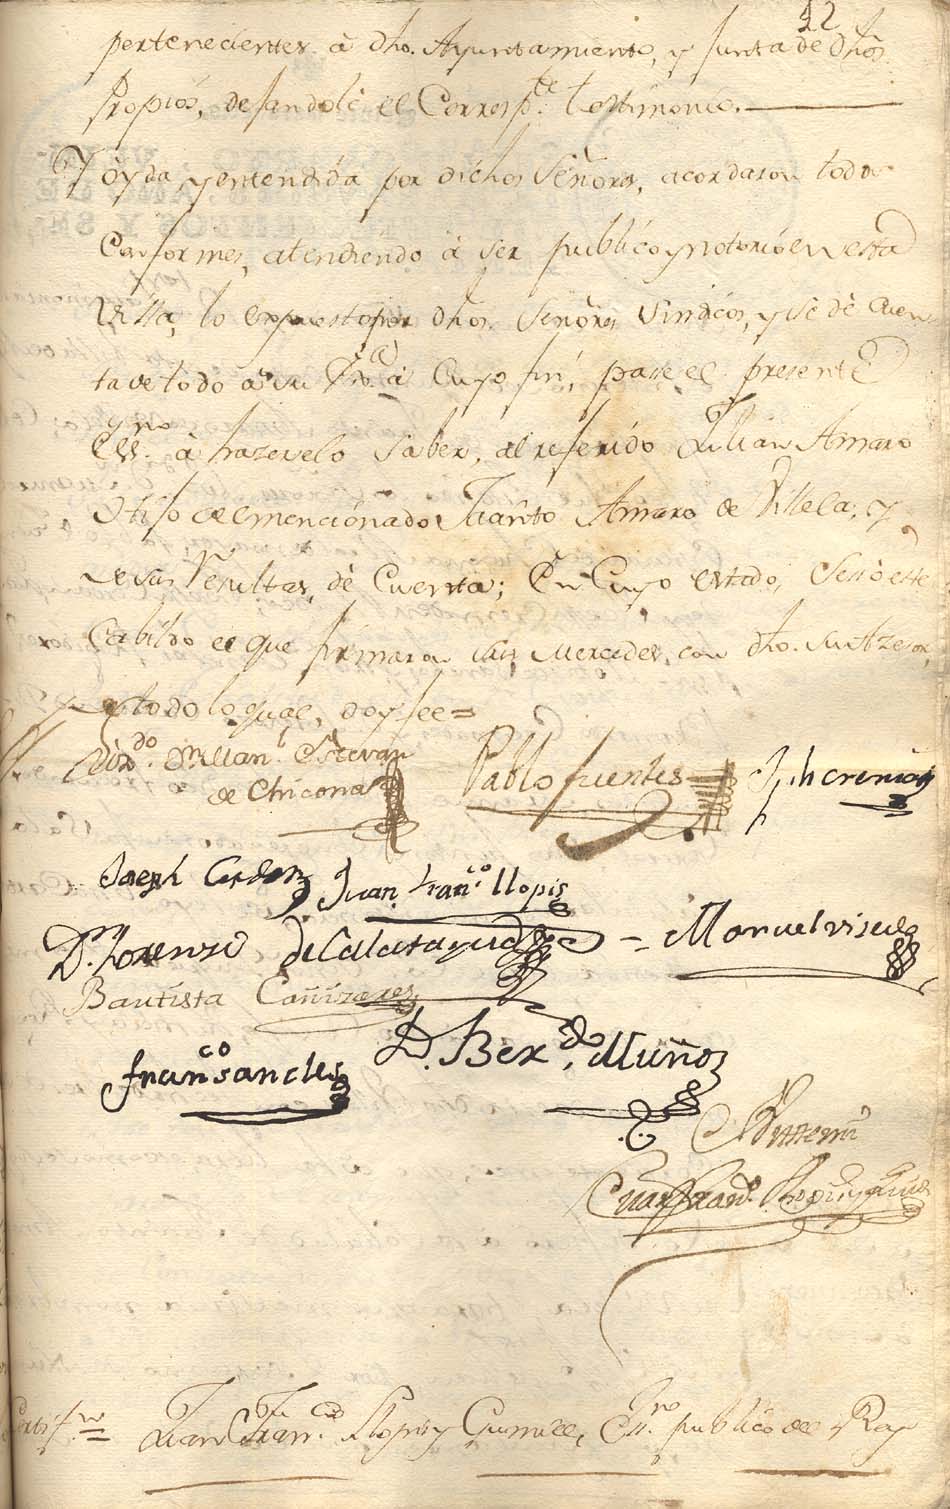 12
pertenecientes â dho. Ayuntamiento, y Junta de dhõs
Propios, dejandole el Corresp.te testimonio.
Y oyda, y entendida por dichos Señores, acordaron todos
Conformes, atendiendo â ser publico y notorio en esta
Villa, lo expuesto por dhos. Señores Sindicos, y se dè Cuen
ta de todo a su à Cuyo fin, passe el presente
Ess.no â hazerelo saber, al referido Juan Amaro
Hijo del mencionado Amaro de Villela, y
de sus Resultas, dè Cuenta; En Cuyo estado, Cesò este
Cabildo el que firmaron sus Mercedes, con dho. su Atzesor,
y de todo lo qual, doy fee =
Lizdo. Estevan
de Chicona
Pablo fuentes
Joseph Cerdan
Juan Fran.co llopis
D.n Lorenzo de Calatayud
Manuel visedo
Bautista Cañizares
D. Ber.do Muñoz
fran.co sanches
Antemi
Juan Fran.co Llopis y
Juan Fran.co Llopis y Gumiel, Ess.no publico del Rey